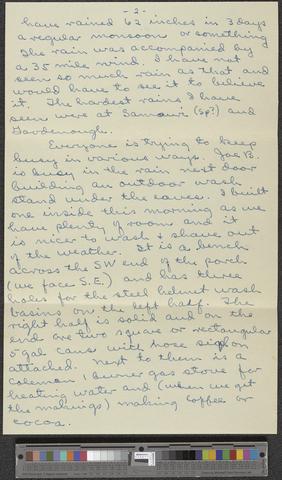 - 2 -
have rained 62 inches in 3 days
a regular monsoon or something
The rain was accompanied by
a 35 mile wind. I have not
seen so much rain as that and
would have to see it to believe
it. The hardest rains I have
seen were at Samour (sp?) and
Gardenough.
Everyone is trying to keep
busy in various ways. Joe B.
is busy in the rain next door
building an outdoor wash
stand under the eaves. I built
one inside this morning as we
have plenty of room and it
is nicer to wash & shave out
of the weather. It is a bench
across the SW end of the porch
(we face S.E.) and has three
holes for the steel helmet wash
basins on the left half. The
right half is solid and on the
end are two square or rectangular
5 gal cans with hose siphon
attached. Next to them is a
Coleman 1 burner gas stove for
heating water and (when we get
the makings) making coffee or
cocoa.